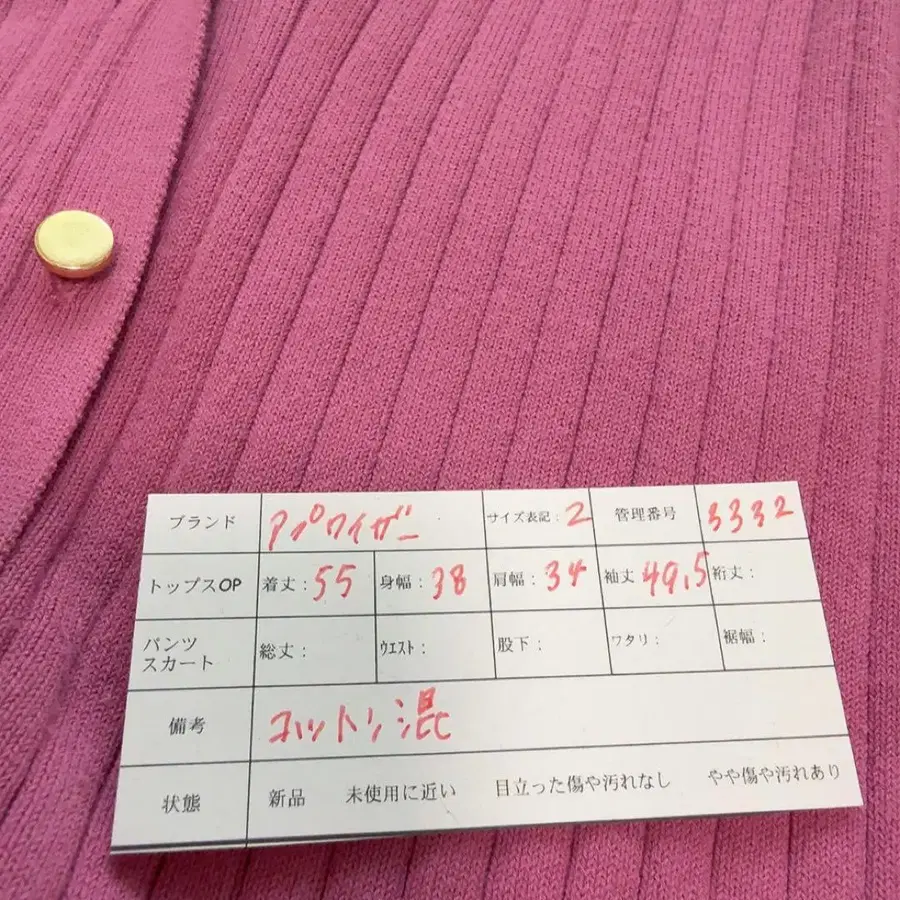 ブランド アプワイザー サイズ表記：2 管理番号 3332
トップスOP 着丈：55 身幅：38 肩幅：34 袖丈 49.5 裄丈：
パンツ
スカート 総丈： ウエスト： 股下： ワタリ： 裾幅：
備考 コットン混
状態 新品 未使用に近い 目立った傷や汚れなし やや傷や汚れあり